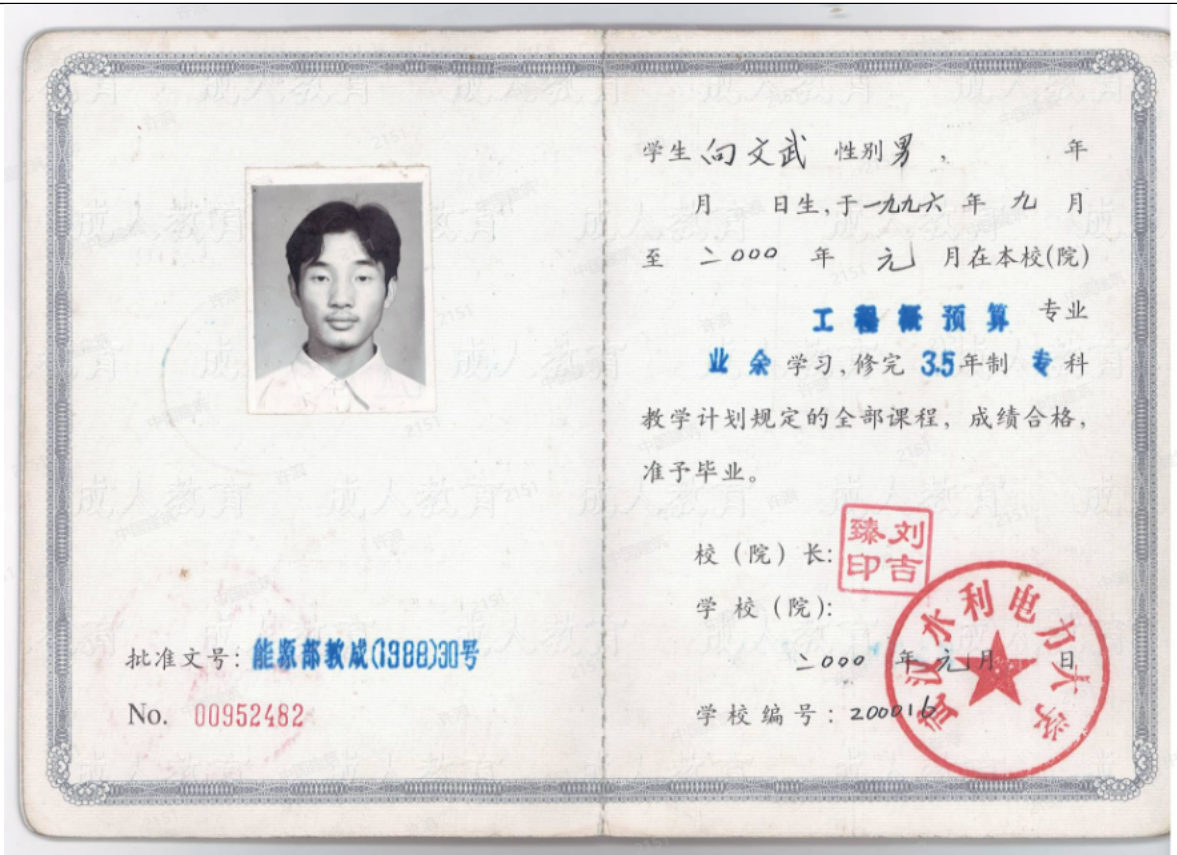 批准文号：能源部教成(1988)30号
No. 00952482
学生 向文武 性别 男 ， 年
月 日生，于一九九六 年 九 月
至 二000 年 元 月在本校(院)
工程概预算 专业
业余 学习，修完 3.5 年制 专 科
教学计划规定的全部课程，成绩合格，
准予毕业。
校（院）长：
刘吉臻印
学校（院）：
武汉水利电力大学
二000 年 元 月 日
学校编号：200016
成人教育